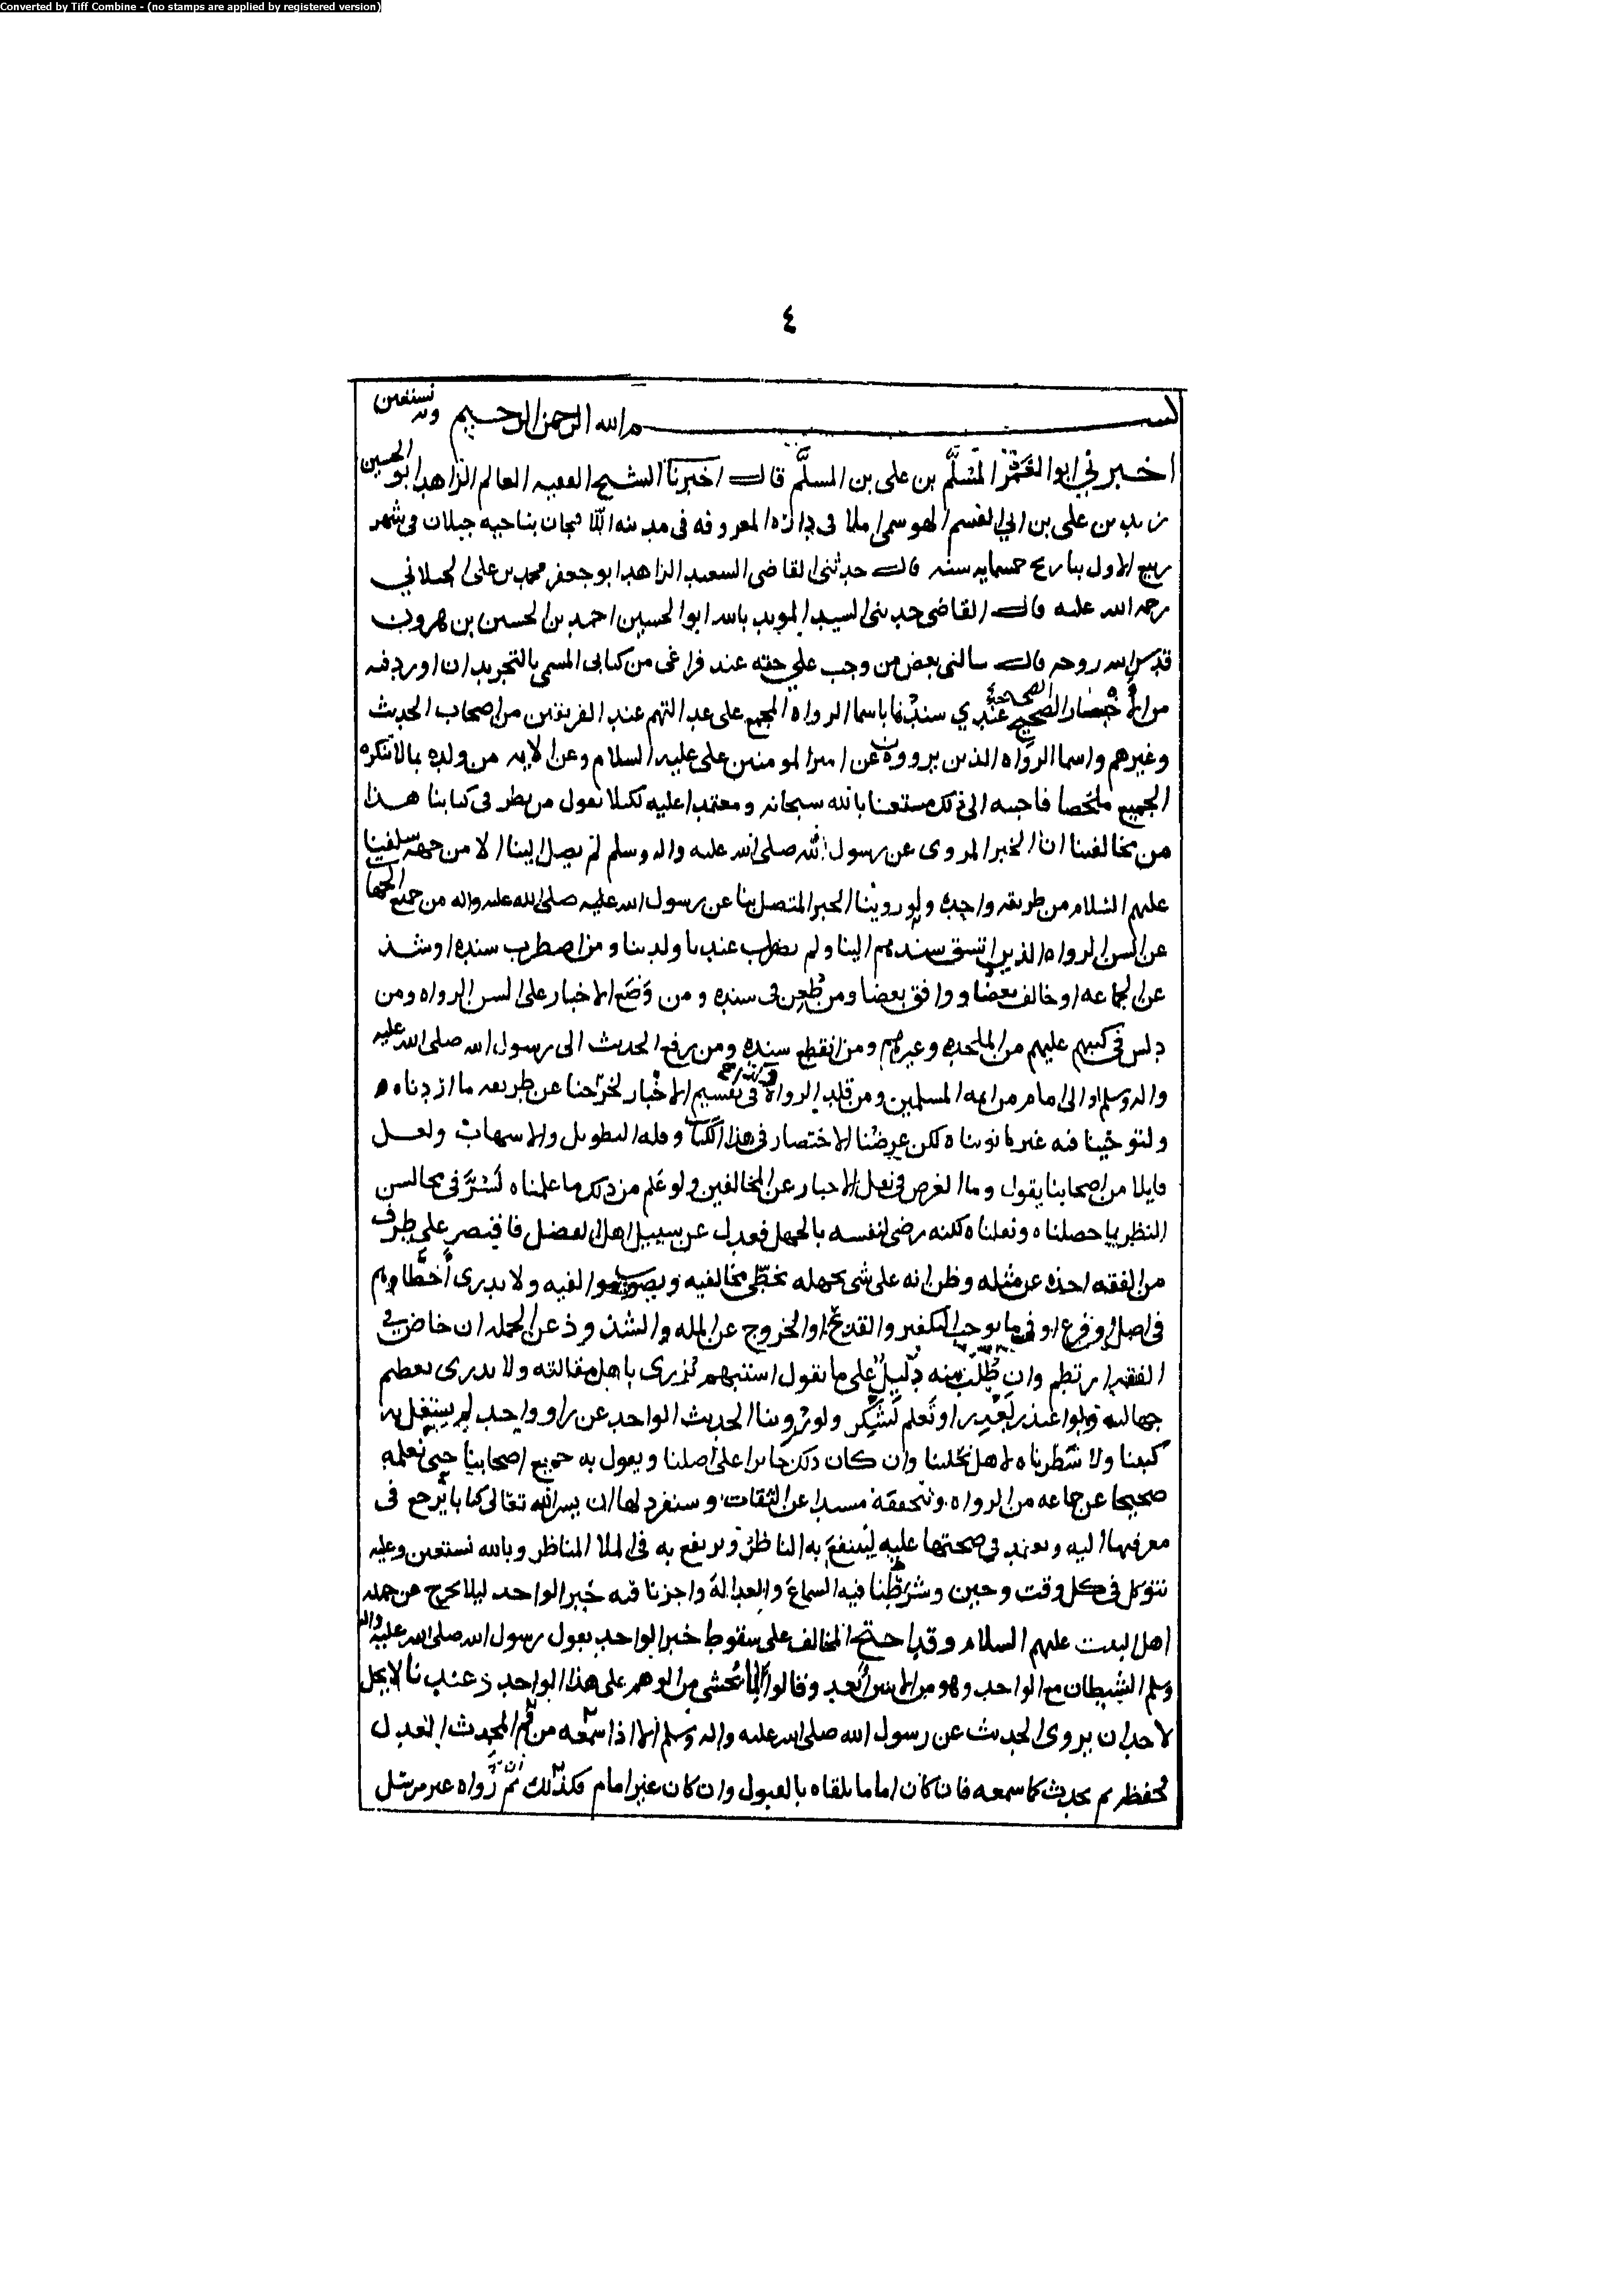 Converted by Tiff Combine - (no stamps are applied by registered version)
٤
بسم الله الرحمن الرحيم وبه نستعين
اخبرني ابو الغمر المسلم بن علي بن المسلم قال اخبرنا الشيخ الفقيه العالم الزاهد ابو الحسين
زيد بن علي بن ابي القسم الهوسمي املا في داره المعروفه في مدينه بناحيه جيلان في شهر
ربيع الاول بتاريخ خمسمايه سنه قال حدثني القاضي السعيد الزاهد ابو جعفر محمد بن علي الجيلاني
رحمه الله عليه قال القاضي حدثني السيد المويد بالله ابو الحسين احمد بن الحسين بن هرون
قدس الله روحه قال سالني بعض من وجب علي حقه عند فراغي من كتابي المسمى بالتجريد ان اورد فيه
من الأخبار الصحيحة عندي سندنا باسما الرواه المجمع على عدالتهم عند الفريقين من اصحاب الحديث
وغيرهم واسما الرواه الذين يروون عن امير المومنين علي عليه السلام وعن الايمه من ولده بما لا تنكره
الجميع ملخصا فاجبته الى ذلك مستعينا بالله سبحانه ومعتمدا عليه لكيلا يقول من نظر في كتابنا هذا
من مخالفينا ان الخبر المروي عن رسول الله صلى الله عليه واله وسلم لم يصل الينا الا من جهه سلفنا
عليهم السلام من طريقه واحده ولو روينا الخبر المتصل بنا عن رسول الله صلى الله عليه واله من جميع الجهات
عن السن الرواه الذين اتسق سندهم الينا ولم يضطرب عندنا ولدينا ومن اضطرب سنده او شذ
عن الجماعه او خالف بعضا ووافق بعضا ومن طعن في سنده ومن وضع الاخبار على السن الرواه ومن
دلس في كتبهم عليهم من الملحده وغيرهم ومن انقطع سنده ومن رفع الحديث الى رسول الله صلى الله عليه
واله وسلم او الى امام من ايمه المسلمين ومن قلب الرواة في تقسيم الاخبار لخرجنا عن طريقه ما اردناه
ولتوخينا فيه غير ما نويناه لكن غرضنا الاختصار في هذا الكتاب وقله التطويل والاسهاب ولعل
قايلا من اصحابنا يقول وما الغرض في نقل الاخبار عن المخالفين ولو علم من ذلك ما علمناه لسر في مجالس
النظر بما حصلناه ونقلناه لكنه رضي لنفسه بالجهل فعدل عن سبيل اهل الفضل فاقتصر على طرف
من الفقه اخذه عن مثله وظن انه على شي بجهله يخطي مخالفيه ويصوب موالفيه ولا يدري أخطاوهم
في اصل او فرع او فيما يوجب التكفير والقدح او الخروج عن المله والشذوذ عن الجمله ان خاض في
الفقه ارتطم وان طلب منه دليل على ما يقول استبهم يزري باهل مقالته ولا يدري بعظم
جهالته فلو اعتذر لعذر او تعلم لشكر ولو روينا الحديث الواحد عن راو واحد لم يشتغل به
كتبنا ولا سطرناه لاهل نحلتنا وان كان ذلك جايزا على اصلنا ويعول به جميع اصحابنا حتى نعلمه
صحيحا عن جماعه من الرواه ونتحققه مسندا عن الثقات وسنفرد لها ان يسر الله تعالى كتابا يرجع في
معرفتها اليه ويعتمد في صحتها عليه لينتفع به الناظر ويرتفع به في الملا المناظر وبالله نستعين وعليه
نتوكل في كل وقت وحين وشرطنا فيه السماع والعدالة واجزنا فيه خبر الواحد ليلا نخرج عن جمله
اهل البيت عليهم السلام وقد احتج المخالف على سقوط خبر الواحد بقول رسول الله صلى الله عليه واله
وسلم الشيطان مع الواحد وهو من الاثنين أبعد وقالوا إنا نخشى من الوهم على هذا الواحد وعندنا لا يحل
لاحد ان يروي الحديث عن رسول الله صلى الله عليه واله وسلم الا اذا سمعه من فم المحدث العدل
فحفظه ثم يحدث كما سمعه فان كان اماما تلقاه بالقبول وان كان غير امام فكذلك ثم رواه غير مرسل